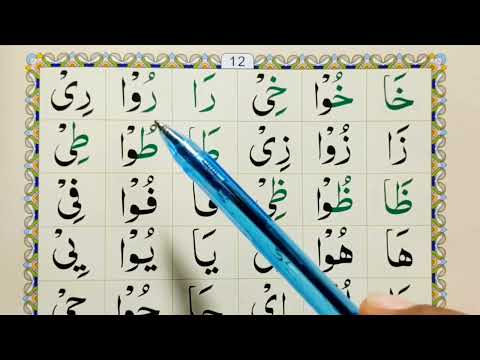 12
خَا خُوْا خِىْ رَا رُوْا رِىْ
زَا زُوْا زِىْ طَا طُوْا طِىْ
ظَا ظُوْا ظِىْ فُوْا فِىْ
هَا هُوْا يَا يُوْا يِىْ